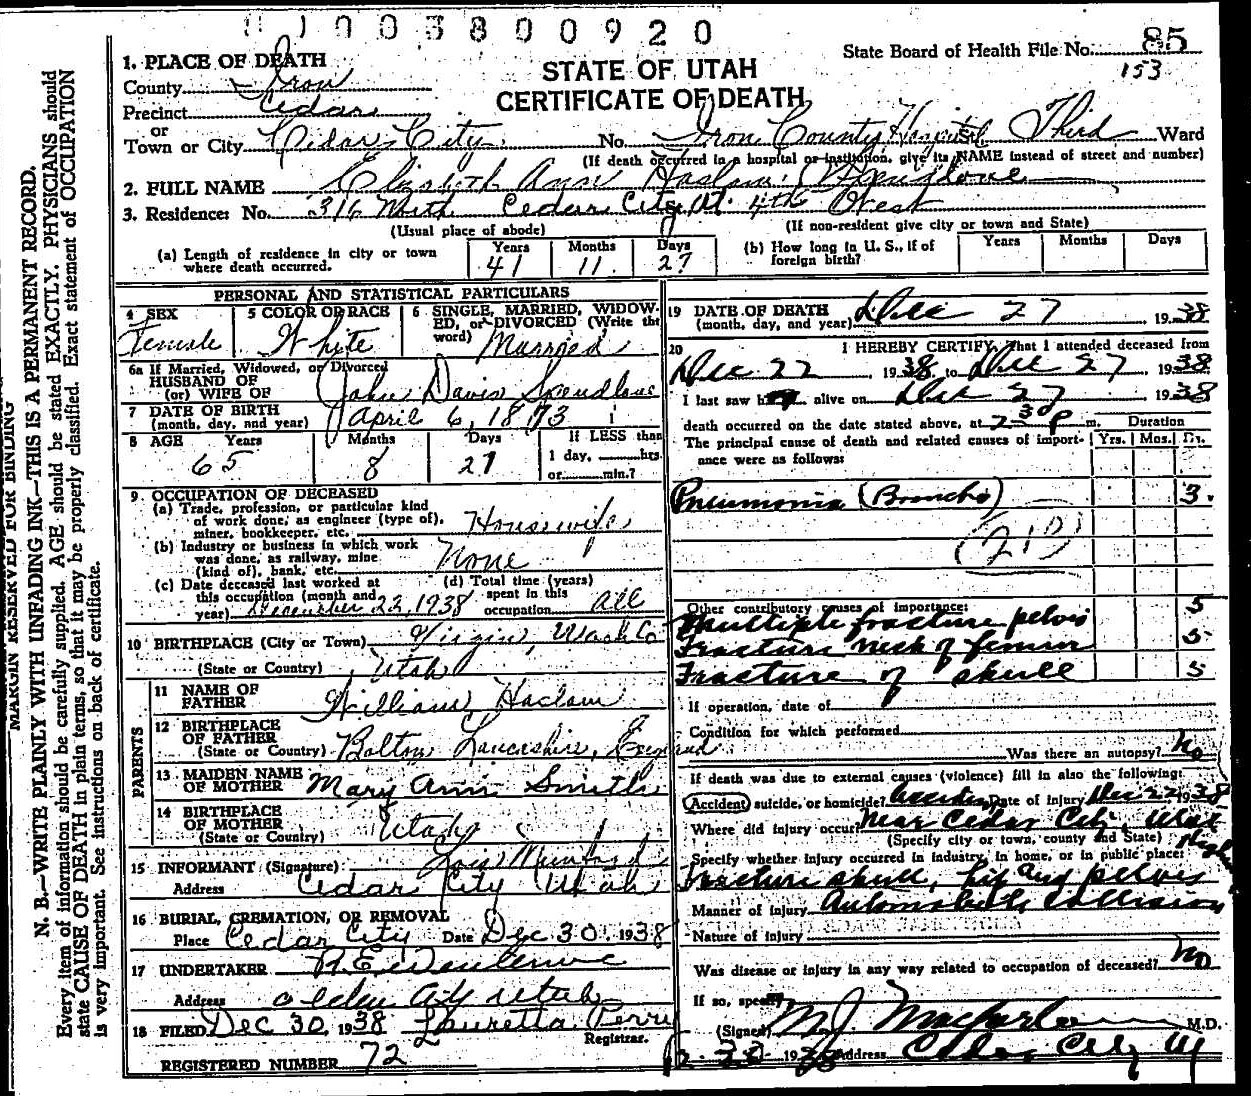 1003800920
State Board of Health File No. 85
153
STATE OF UTAH
CERTIFICATE OF DEATH
1. PLACE OF DEATH
County Iron
Precinct Cedar
or
Town or City Cedar City No. Iron County Hospital St. Third Ward
(If death occurred in a hospital or institution, give its NAME instead of street and number)
2. FULL NAME Elizabeth Ann Haslam Spendlove
3. Residence: No. 316 North Cedar City, Ut. 4th West
(Usual place of abode) (If non-resident give city or town and State)
(a) Length of residence in city or town where death occurred. Years 41 Months 11 Days 27
(b) How long in U. S., if of foreign birth? Years Months Days
PERSONAL AND STATISTICAL PARTICULARS
4 SEX Female
5 COLOR OR RACE White
6 SINGLE, MARRIED, WIDOWED, or DIVORCED (Write the word) Married
6a If Married, Widowed, or Divorced
HUSBAND OF
(or) WIFE OF John Davis Spendlove
7 DATE OF BIRTH
(month, day, and year) April 6, 1873
8 AGE Years 65 Months 8 Days 21 If LESS than 1 day, hrs. or min.?
9. OCCUPATION OF DECEASED
(a) Trade, profession, or particular kind
of work done, as engineer (type of),
miner, bookkeeper, etc. Housewife
(b) Industry or business in which work
was done, as railway, mine
(kind of), bank, etc. None
(c) Date deceased last worked at
this occupation (month and
year) December 22, 1938
(d) Total time (years)
spent in this
occupation all
10 BIRTHPLACE (City or Town) Virgin, Wash Co
(State or Country) Utah
PARENTS
11 NAME OF FATHER William Haslam
12 BIRTHPLACE OF FATHER
(State or Country) Bolton Lancashire, England
13 MAIDEN NAME OF MOTHER Mary Ann Smith
14 BIRTHPLACE OF MOTHER
(State or Country) Utah
15 INFORMANT (Signature) Lois Munford
Address Cedar City Utah
16 BURIAL, CREMATION, OR REMOVAL
Place Cedar City Date Dec 30, 1938
17 UNDERTAKER
Address Cedar City Utah
18 FILED Dec 30, 1938 Lauretta Perry
Registrar.
REGISTERED NUMBER 72
19 DATE OF DEATH
(month, day, and year) Dec 27 1938
20 I HEREBY CERTIFY, That I attended deceased from
Dec 22 1938 to Dec 27 1938
I last saw h alive on Dec 27 1938
death occurred on the date stated above, at 2 30 P m.
The principal cause of death and related causes of importance were as follows:
Duration Yrs. Mos. Ds.
Pneumonia (Broncho) 3.
Other contributory causes of importance:
Multiple fracture pelvis 5
Fracture neck of femur 5
Fracture of skull 5
If operation, date of
Condition for which performed
Was there an autopsy? No
If death was due to external causes (violence) fill in also the following:
Accident, suicide, or homicide? Accident Date of injury Dec 22 1938
Where did injury occur? near Cedar City, Utah
(Specify city or town, county and State)
Specify whether injury occurred in industry, in home, or in public place:
Fracture skull, hip and pelvis
Manner of injury Automobile collision
Nature of injury
Was disease or injury in any way related to occupation of deceased? No
If so, specify
(Signed) M J Macfarlane M.D.
Address Cedar City Ut
MARGIN RESERVED FOR BINDING
N. B.—WRITE PLAINLY WITH UNFADING INK—THIS IS A PERMANENT RECORD.
Every item of information should be carefully supplied. AGE should be stated EXACTLY. PHYSICIANS should
state CAUSE OF DEATH in plain terms, so that it may be properly classified. Exact statement of OCCUPATION
is very important. See instructions on back of certificate.